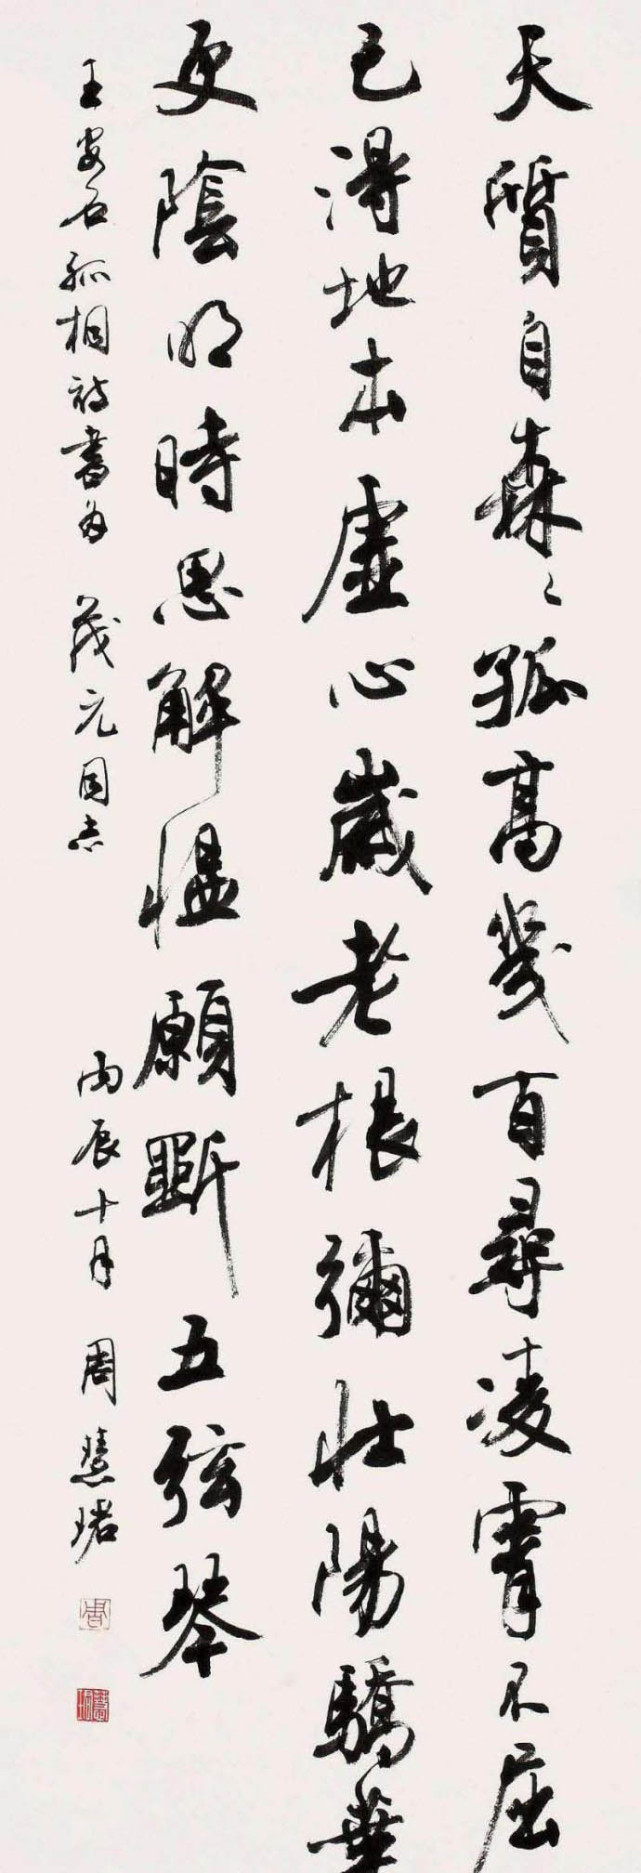 天質自森々孤高幾百尋凌霄不屈
己得地本虛心歲老根彌壯陽驕葉
更陰明時思解慍願斲五弦琴
王安石孤桐詩書為 茂元同志 丙辰十月 周慧珺